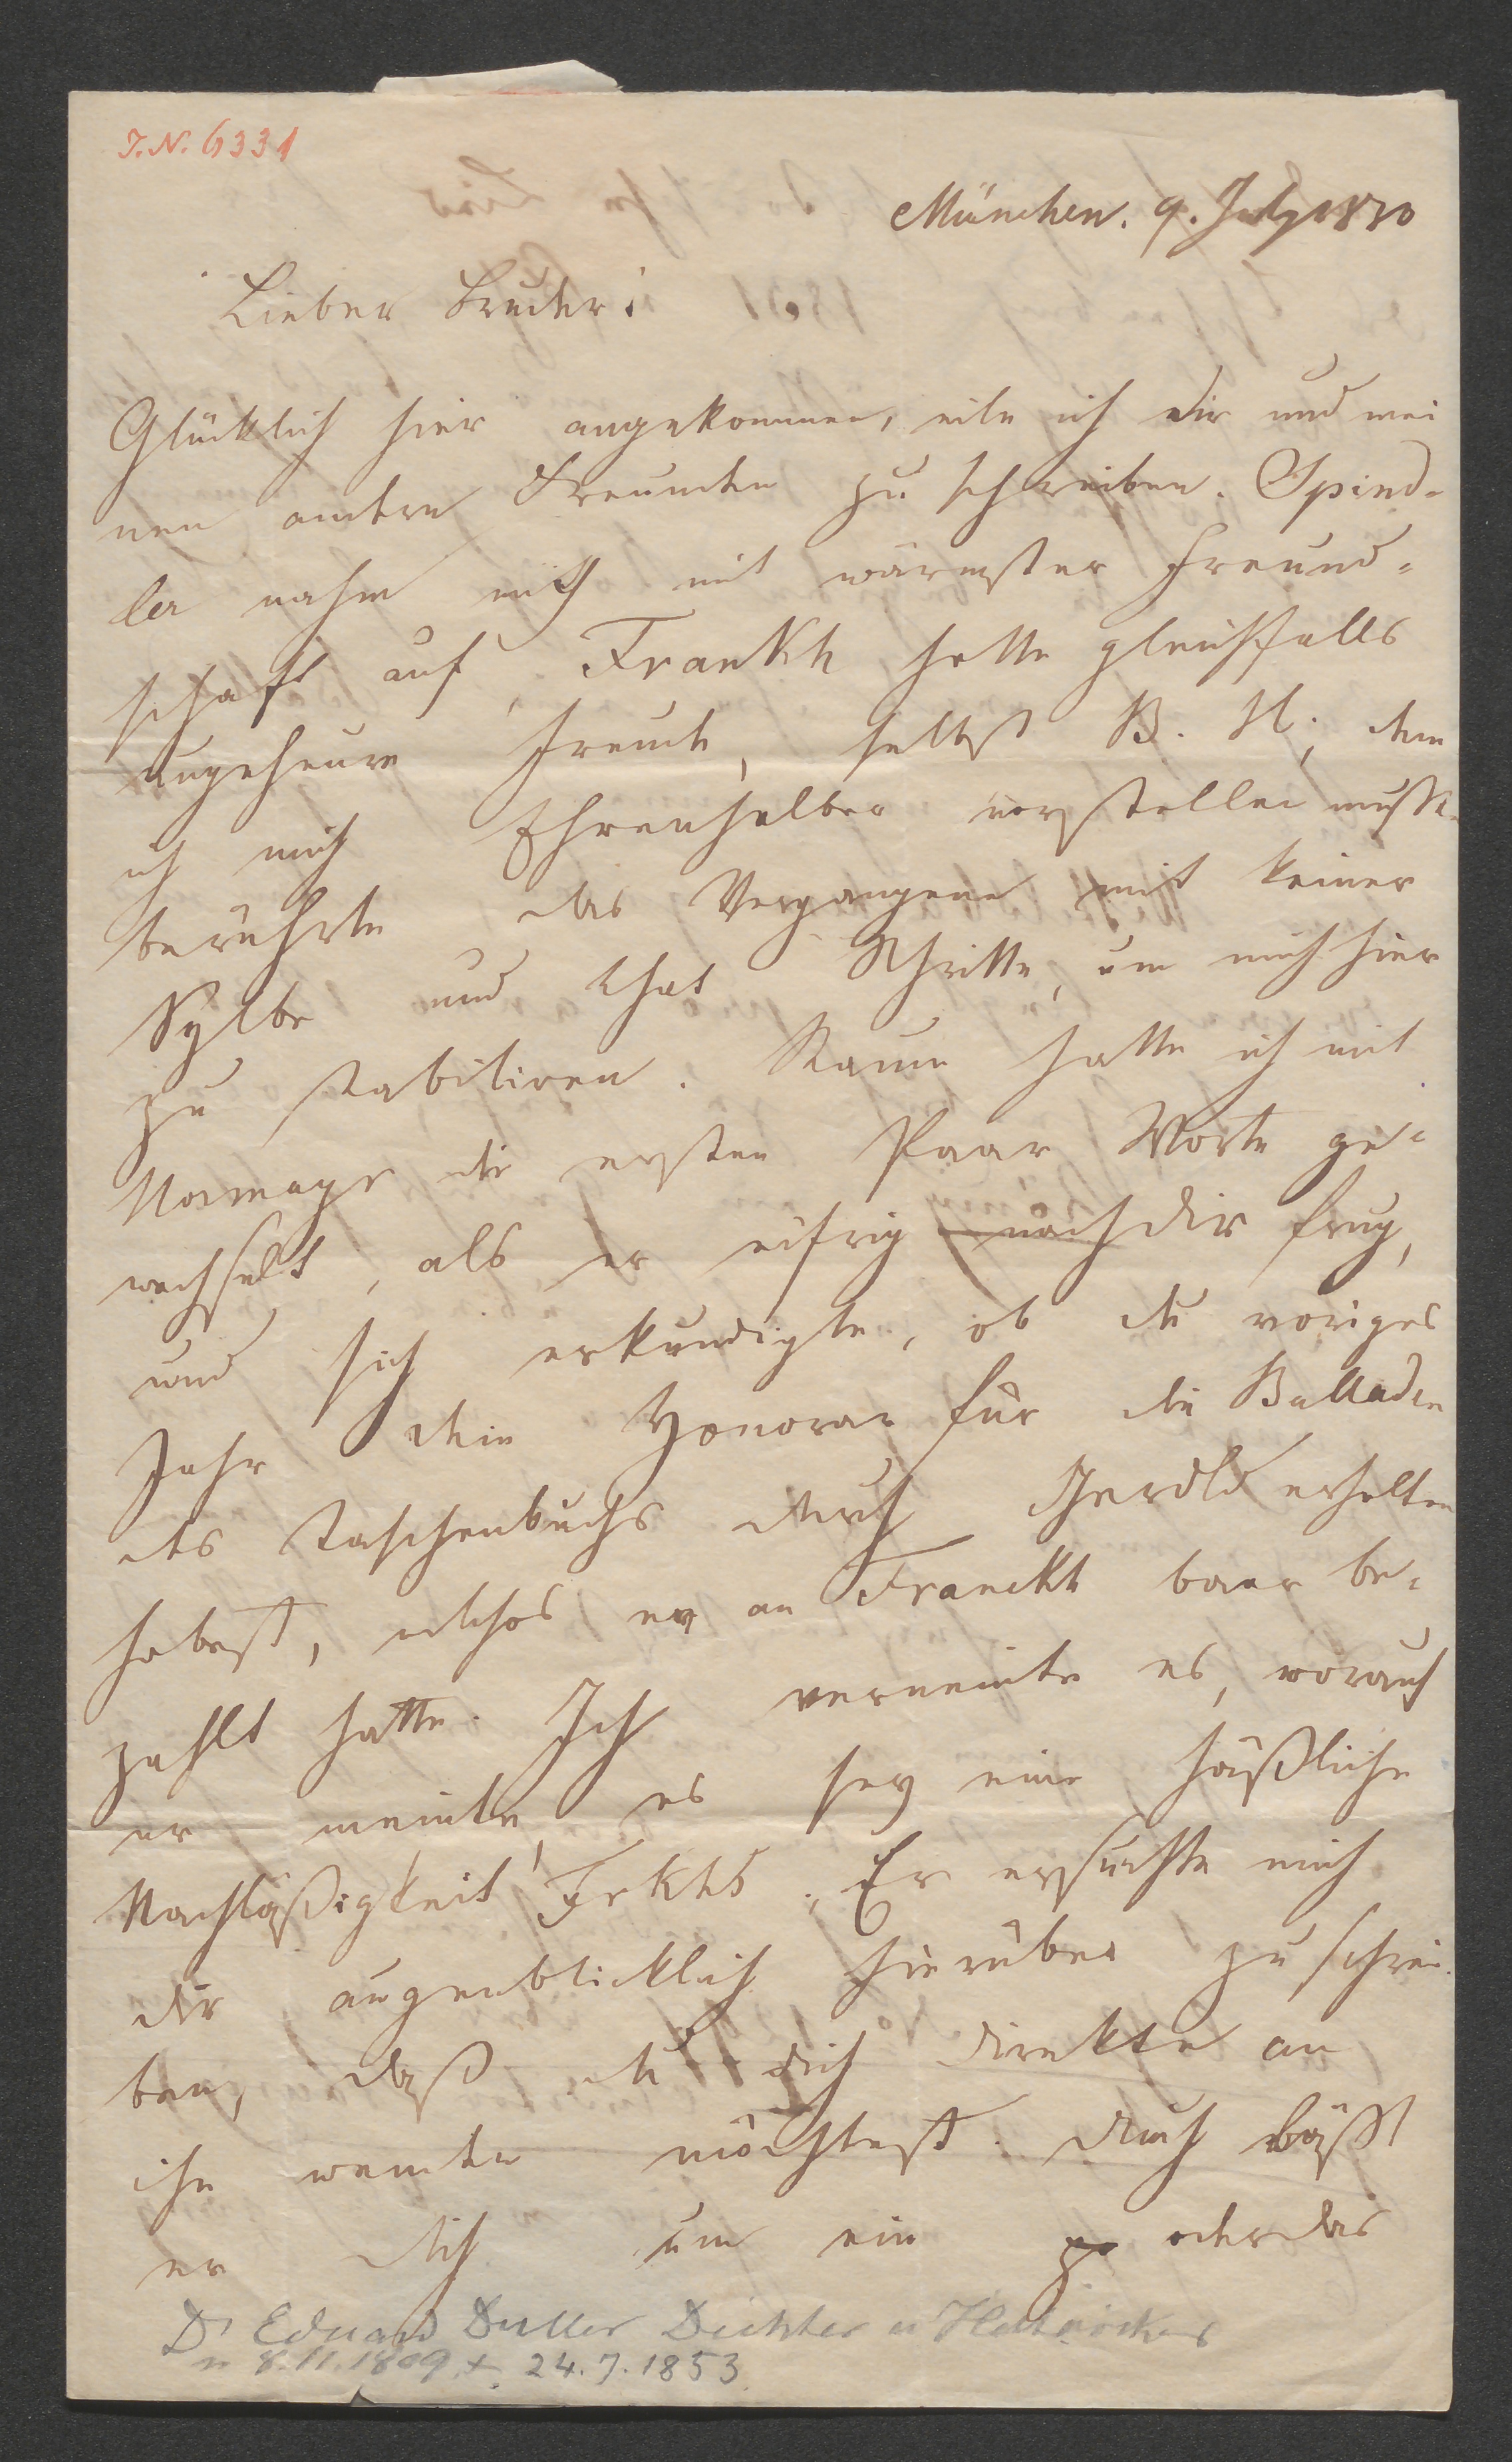 J.N. 6331
München. 9. July 1830
Lieber Bruder!
Glücklich hier angekommen, eile ich dir und mei
nen andern Freunden zu schreiben. Spind-
ler nahm mich mit wärmster Freund-
schaft auf, Frankh hatte gleichfalls
ungeheure Freude, selbst B. H., dem
ich mich Ehrenhalber vorstellen mußte
berührte das Vergangene mit keiner
Sylbe und that Schritte, um mich hier
zu stabiliren. Kaum hatte ich mit
Hormayr die ersten Paar Worte ge-
wechselt, als er eifrig nach dir frug,
und sich erkundigte, ob du voriges
Jahr dein Honorar für die Balladen
des Taschenbuchs durch Gerold erhalten
habest, welches er an Franckh baar be-
zahlt hatte. Ich verneinte es, worauf
er meinte, es sey eine häßliche
Nachläßigkeit Frkhs. Er ersuchte mich
dir augenblicklich hierüber zu schrei-
ben, daß du dich direkte an
ihn wenden möchtest. Auch läßt
er dich um ein oder das
Dr Eduard Duller Dichter u Historiker
n 8.11.1809 + 24.7.1853